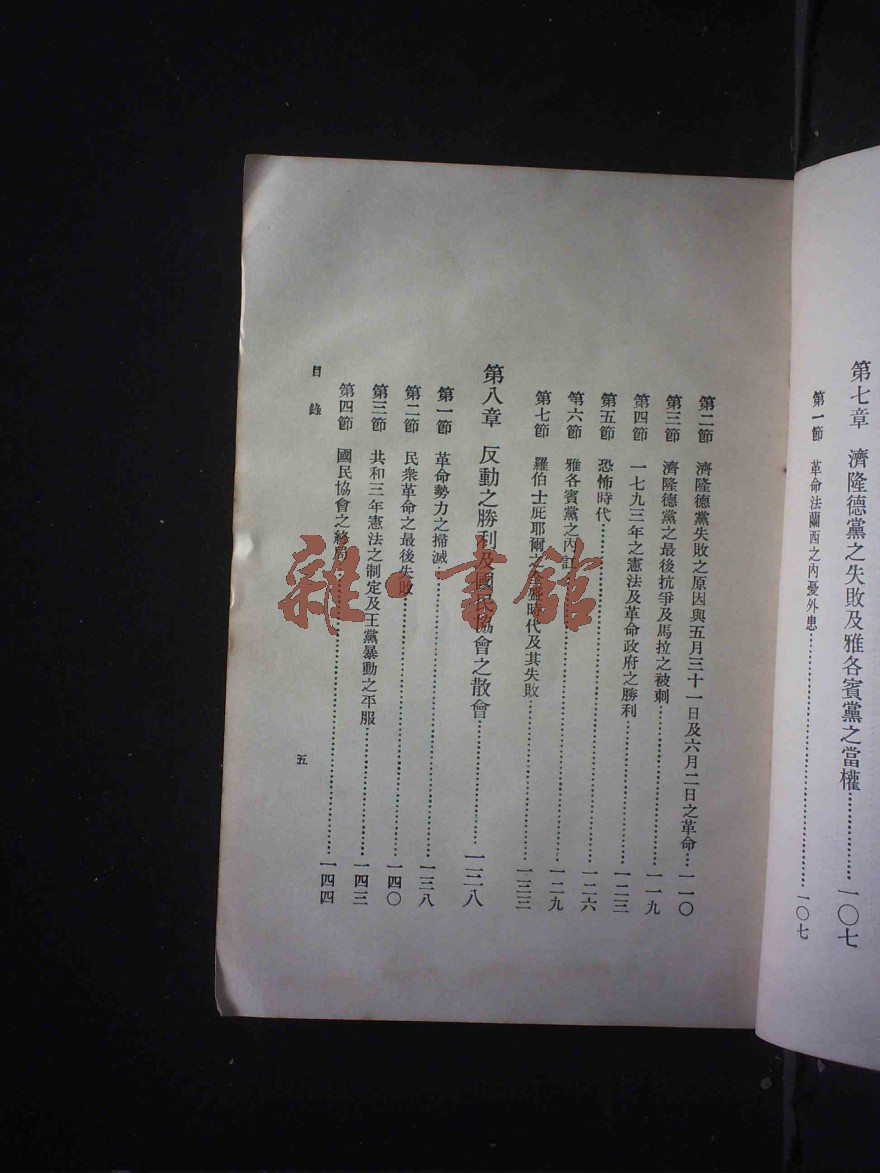 第七章　濟隆德黨之失敗及雅各賓黨之當權……………一〇七
第一節　革命法蘭西之內憂外患……………………………一〇七
第二節　濟隆德黨失敗之原因與五月三十一日及六月二日之革命…一一〇
第三節　濟隆德黨之最後抗爭及馬拉之被刺……………………一一九
第四節　一七九三年之憲法及革命政府之勝利…………………一二三
第五節　恐怖時代……………………………………………一二六
第六節　雅各賓黨之內訌……………………………………一二九
第七節　羅伯士庇耶爾之全盛時代及其失敗……………………一三三
第八章　反動之勝利及國民協會之散會……………………一三八
第一節　革命勢力之掃滅……………………………………一三八
第二節　民衆革命之最後失敗………………………………一四〇
第三節　共和三年憲法之制定及王黨暴動之平服………………一四三
第四節　國民協會之終局……………………………………一四四
目錄
五
雜·書館